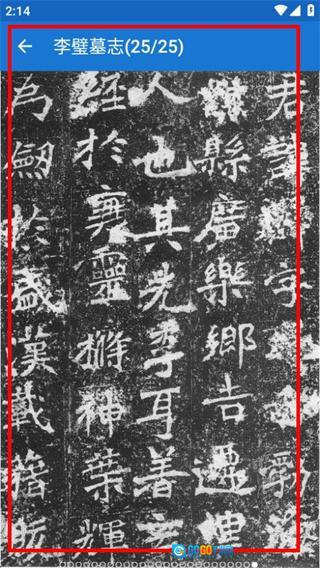 2:14
李璧墓志(25/25)
君諱璧字勃
縣廣樂鄉吉遷里
人也其先李耳著玄
經於靈神葉輝
為劒於盛漢載籍
GOGO